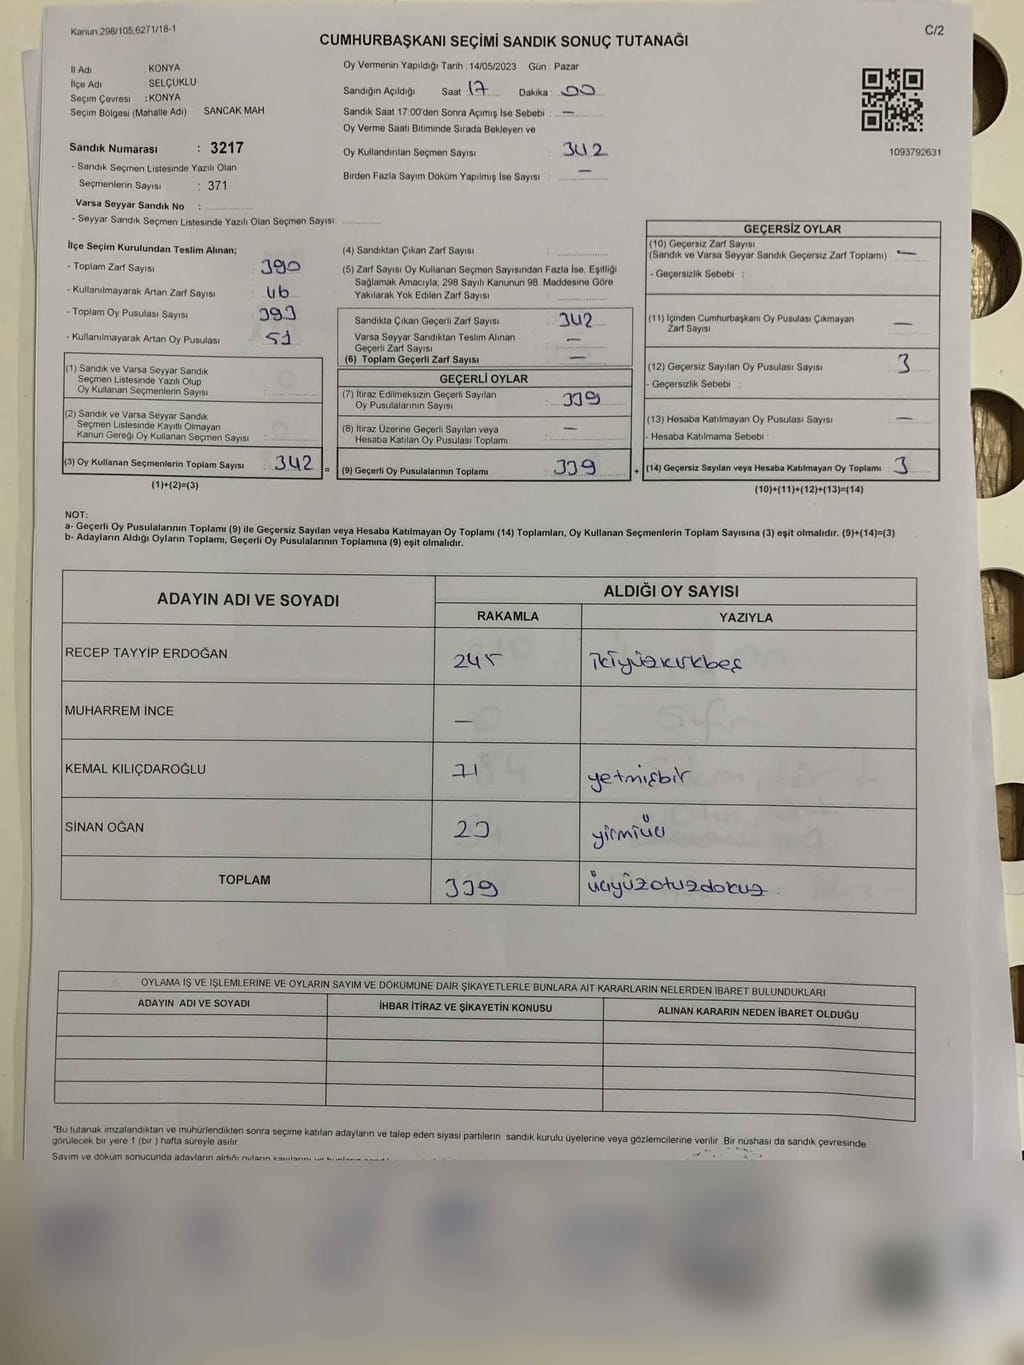 Kanun:298/105,6271/18-1
C/2
CUMHURBAŞKANI SEÇİMİ SANDIK SONUÇ TUTANAĞI
İl Adı : KONYA
İlçe Adı : SELÇUKLU
Seçim Çevresi : KONYA
Seçim Bölgesi (Mahalle Adı) SANCAK MAH.
Sandık Numarası : 3217
- Sandık Seçmen Listesinde Yazılı Olan
Seçmenlerin Sayısı : 371
Varsa Seyyar Sandık No :
- Seyyar Sandık Seçmen Listesinde Yazılı Olan Seçmen Sayısı:
Oy Vermenin Yapıldığı Tarih : 14/05/2023 Gün : Pazar
Sandığın Açıldığı Saat 17 Dakika : 00
Sandık Saat 17:00'den Sonra Açımış İse Sebebi : —
Oy Verme Saati Bitiminde Sırada Bekleyen ve
Oy Kullandırılan Seçmen Sayısı : 342
Birden Fazla Sayım Döküm Yapılmış İse Sayısı : —
1093792631
İlçe Seçim Kurulundan Teslim Alınan;
- Toplam Zarf Sayısı : 390
- Kullanılmayarak Artan Zarf Sayısı : 46
- Toplam Oy Pusulası Sayısı : 393
- Kullanılmayarak Artan Oy Pusulası : 51
(1) Sandık ve Varsa Seyyar Sandık
Seçmen Listesinde Yazılı Olup
Oy Kullanan Seçmenlerin Sayısı :
(2) Sandık ve Varsa Seyyar Sandık
Seçmen Listesinde Kayıtlı Olmayan
Kanun Gereği Oy Kullanan Seçmen Sayısı :
(3) Oy Kullanan Seçmenlerin Toplam Sayısı : 342
(1)+(2)=(3)
(4) Sandıktan Çıkan Zarf Sayısı :
(5) Zarf Sayısı Oy Kullanan Seçmen Sayısından Fazla İse, Eşitliği
Sağlamak Amacıyla, 298 Sayılı Kanunun 98. Maddesine Göre
Yakılarak Yok Edilen Zarf Sayısı :
Sandıkta Çıkan Geçerli Zarf Sayısı : 342
Varsa Seyyar Sandıktan Teslim Alınan
Geçerli Zarf Sayısı : —
(6) Toplam Geçerli Zarf Sayısı : —
GEÇERLİ OYLAR
(7) İtiraz Edilmeksizin Geçerli Sayılan
Oy Pusulalarının Sayısı : 339
(8) İtiraz Üzerine Geçerli Sayılan veya
Hesaba Katılan Oy Pusulası Toplamı : —
= (9) Geçerli Oy Pusulalarının Toplamı : 339
GEÇERSİZ OYLAR
(10) Geçersiz Zarf Sayısı
(Sandık ve Varsa Seyyar Sandık Geçersiz Zarf Toplamı) : —
- Geçersizlik Sebebi :
(11) İçinden Cumhurbaşkanı Oy Pusulası Çıkmayan
Zarf Sayısı —
(12) Geçersiz Sayılan Oy Pusulası Sayısı : 3
- Geçersizlik Sebebi :
(13) Hesaba Katılmayan Oy Pusulası Sayısı : —
- Hesaba Katılmama Sebebi :
+ (14) Geçersiz Sayılan veya Hesaba Katılmayan Oy Toplamı : 3
(10)+(11)+(12)+(13)=(14)
NOT:
a- Geçerli Oy Pusulalarının Toplamı (9) ile Geçersiz Sayılan veya Hesaba Katılmayan Oy Toplamı (14) Toplamları, Oy Kullanan Seçmenlerin Toplam Sayısına (3) eşit olmalıdır. (9)+(14)=(3)
b- Adayların Aldığı Oyların Toplamı, Geçerli Oy Pusulalarının Toplamına (9) eşit olmalıdır.
ADAYIN ADI VE SOYADI ALDIĞI OY SAYISI
RAKAMLA YAZIYLA
RECEP TAYYİP ERDOĞAN 245 ikiyüzkırkbeş
MUHARREM İNCE —
KEMAL KILIÇDAROĞLU 71 yetmişbir
SİNAN OĞAN 23 yirmiüç
TOPLAM 339 üçyüzotuzdokuz
OYLAMA İŞ VE İŞLEMLERİNE VE OYLARIN SAYIM VE DÖKÜMÜNE DAİR ŞİKAYETLERLE BUNLARA AİT KARARLARIN NELERDEN İBARET BULUNDUKLARI
ADAYIN ADI VE SOYADI İHBAR İTİRAZ VE ŞİKAYETİN KONUSU ALINAN KARARIN NEDEN İBARET OLDUĞU
*Bu tutanak imzalandıktan ve mühürlendikten sonra seçime katılan adayların ve talep eden siyasi partilerin sandık kurulu üyelerine veya gözlemcilerine verilir. Bir nüshası da sandık çevresinde
görülecek bir yere 1 (bir ) hafta süreyle asılır.
Sayım ve döküm sonucunda adayların aldığı oyların